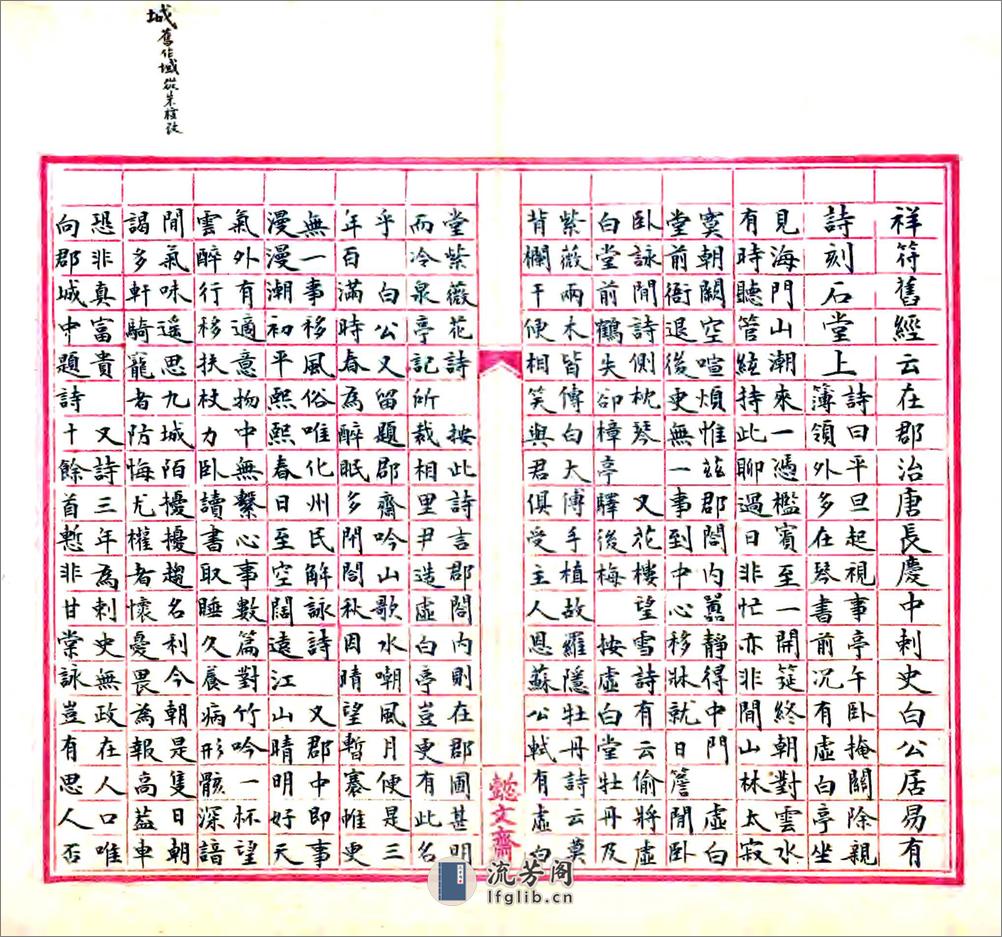 城舊作域從朱校改
祥符舊經云在郡治唐長慶中刺史白公居易有
詩刻石堂上
詩曰平旦起視事亭午臥掩關除親
簿領外多在琴書前況有虛白亭坐
見海門山潮來一憑檻賓至一開筵終朝對雲水
有時聽管絃持此聊過日非忙亦非間山林太寂
寞朝闕空喧煩惟茲郡閤内囂靜得中門 虛白
堂前衙退後更無一事到中心移牀就日簷間臥
臥詠間詩側枕琴 又花樓望雪詩有云偷將虛
白堂前鶴失卻樟亭驛後梅 按虛白堂牡丹及
紫薇兩木皆傳白太傅手植故羅隱牡丹詩云莫
背欄干便相笑與君俱受主人恩蘇公軾有虛白
堂紫薇花詩 按此詩言郡閤内則在郡圃甚明
而冷泉亭記所裁相里尹造虛白亭豈更有此名
乎 白公又留題郡齋吟山歌水嘲風月便是三
年百滿時春為醉眠多閉閤秋因晴望暫褰帷更
無一事移風俗唯化州民解詠詩 又郡中即事
漫漫潮初平熙熙春日至空闊遠江山晴明好天
氣外有適意物中無繫心事數篇對竹吟一杯望
雲醉行移扶杖力臥讀書取睡久養病形骸深諳
間氣味遥思九城陌擾擾趨名利今朝是隻日朝
謁多軒騎寵者防悔尤權者懷憂畏為報高蓋車
恐非真富貴 又詩三年為刺史無政在人口唯
向郡城中題詩十餘首慙非甘棠詠豈有思人否
懿文齋
流芳阁
lfglib.cn